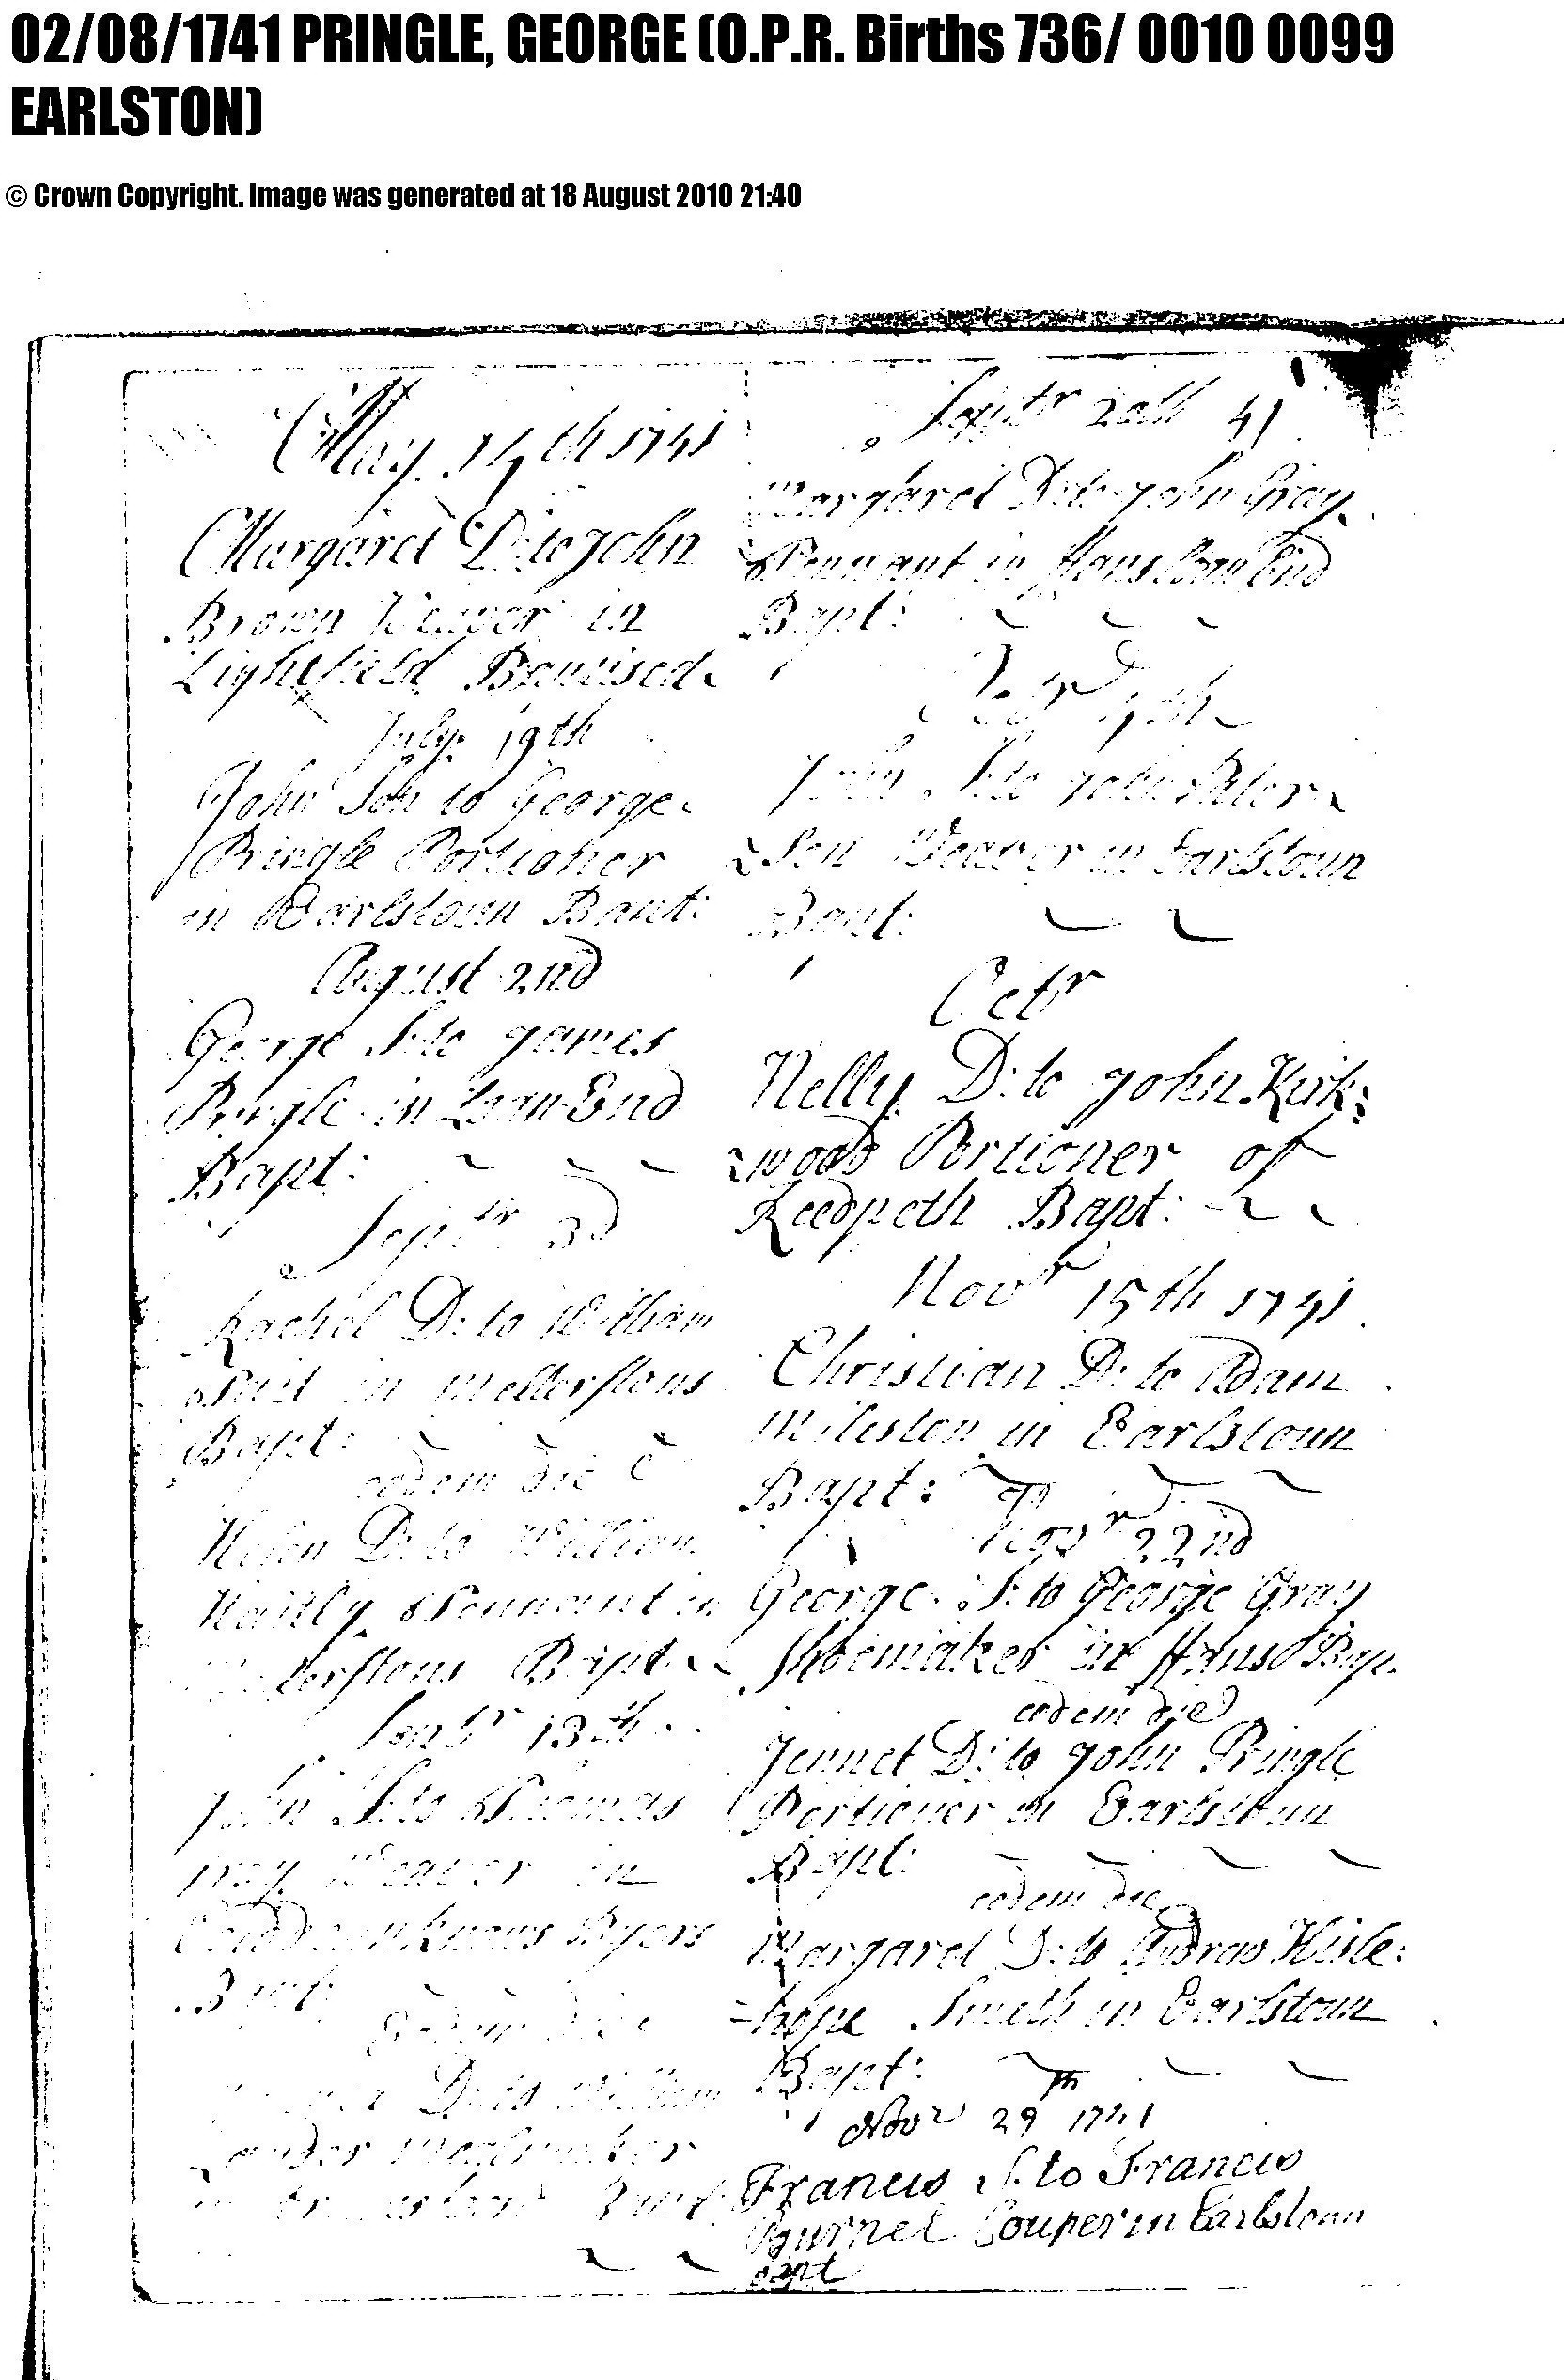 02/08/1741 PRINGLE, GEORGE (O.P.R. Births 736/ 0010 0099
EARLSTON)
© Crown Copyright. Image was generated at 18 August 2010 21:40
May 14th 1741
Margaret D: to John
Brown Weaver in
Lightfield Baptised
July 19th
John Son to George
Pringle Portioner
in Earlstoun Bapt:
August 2nd
George S: to James
Pringle in Loan End
Bapt:
Septr 3d
Rachel D: to William
in Mellerstons
Bapt:
eodem die
Helen D: to William
Tennant in
Bapt
Septr 13th
John S: to Thomas
Weaver in
Byers
Bapt:
eodem die
D: to William
in Bapt:
Septr 20th 41
Margaret D: to John Gray
Tennant in Loan End
Bapt:
John S: to John
Son Weaver in Earlstoun
Bapt:
Octr
Nelly D: to John Kirk:
wood Portioner of
Reedpeth Bapt:
Novr 15th 1741
Christian D: to Adam
in Earlstoun
Bapt:
Novr 22nd
George S: to George Gray
Shoemaker in Bap.
eodem die
Jennet D: to John Pringle
Portioner in Earlstoun
Bapt:
eodem die
Margaret D: to Andrew Hisle:
-hope Smith in Earlstoun
Bapt:
Novr 29th 1741
Francis S. to Francis
Burnet Couper in Earlstoun
Bapt